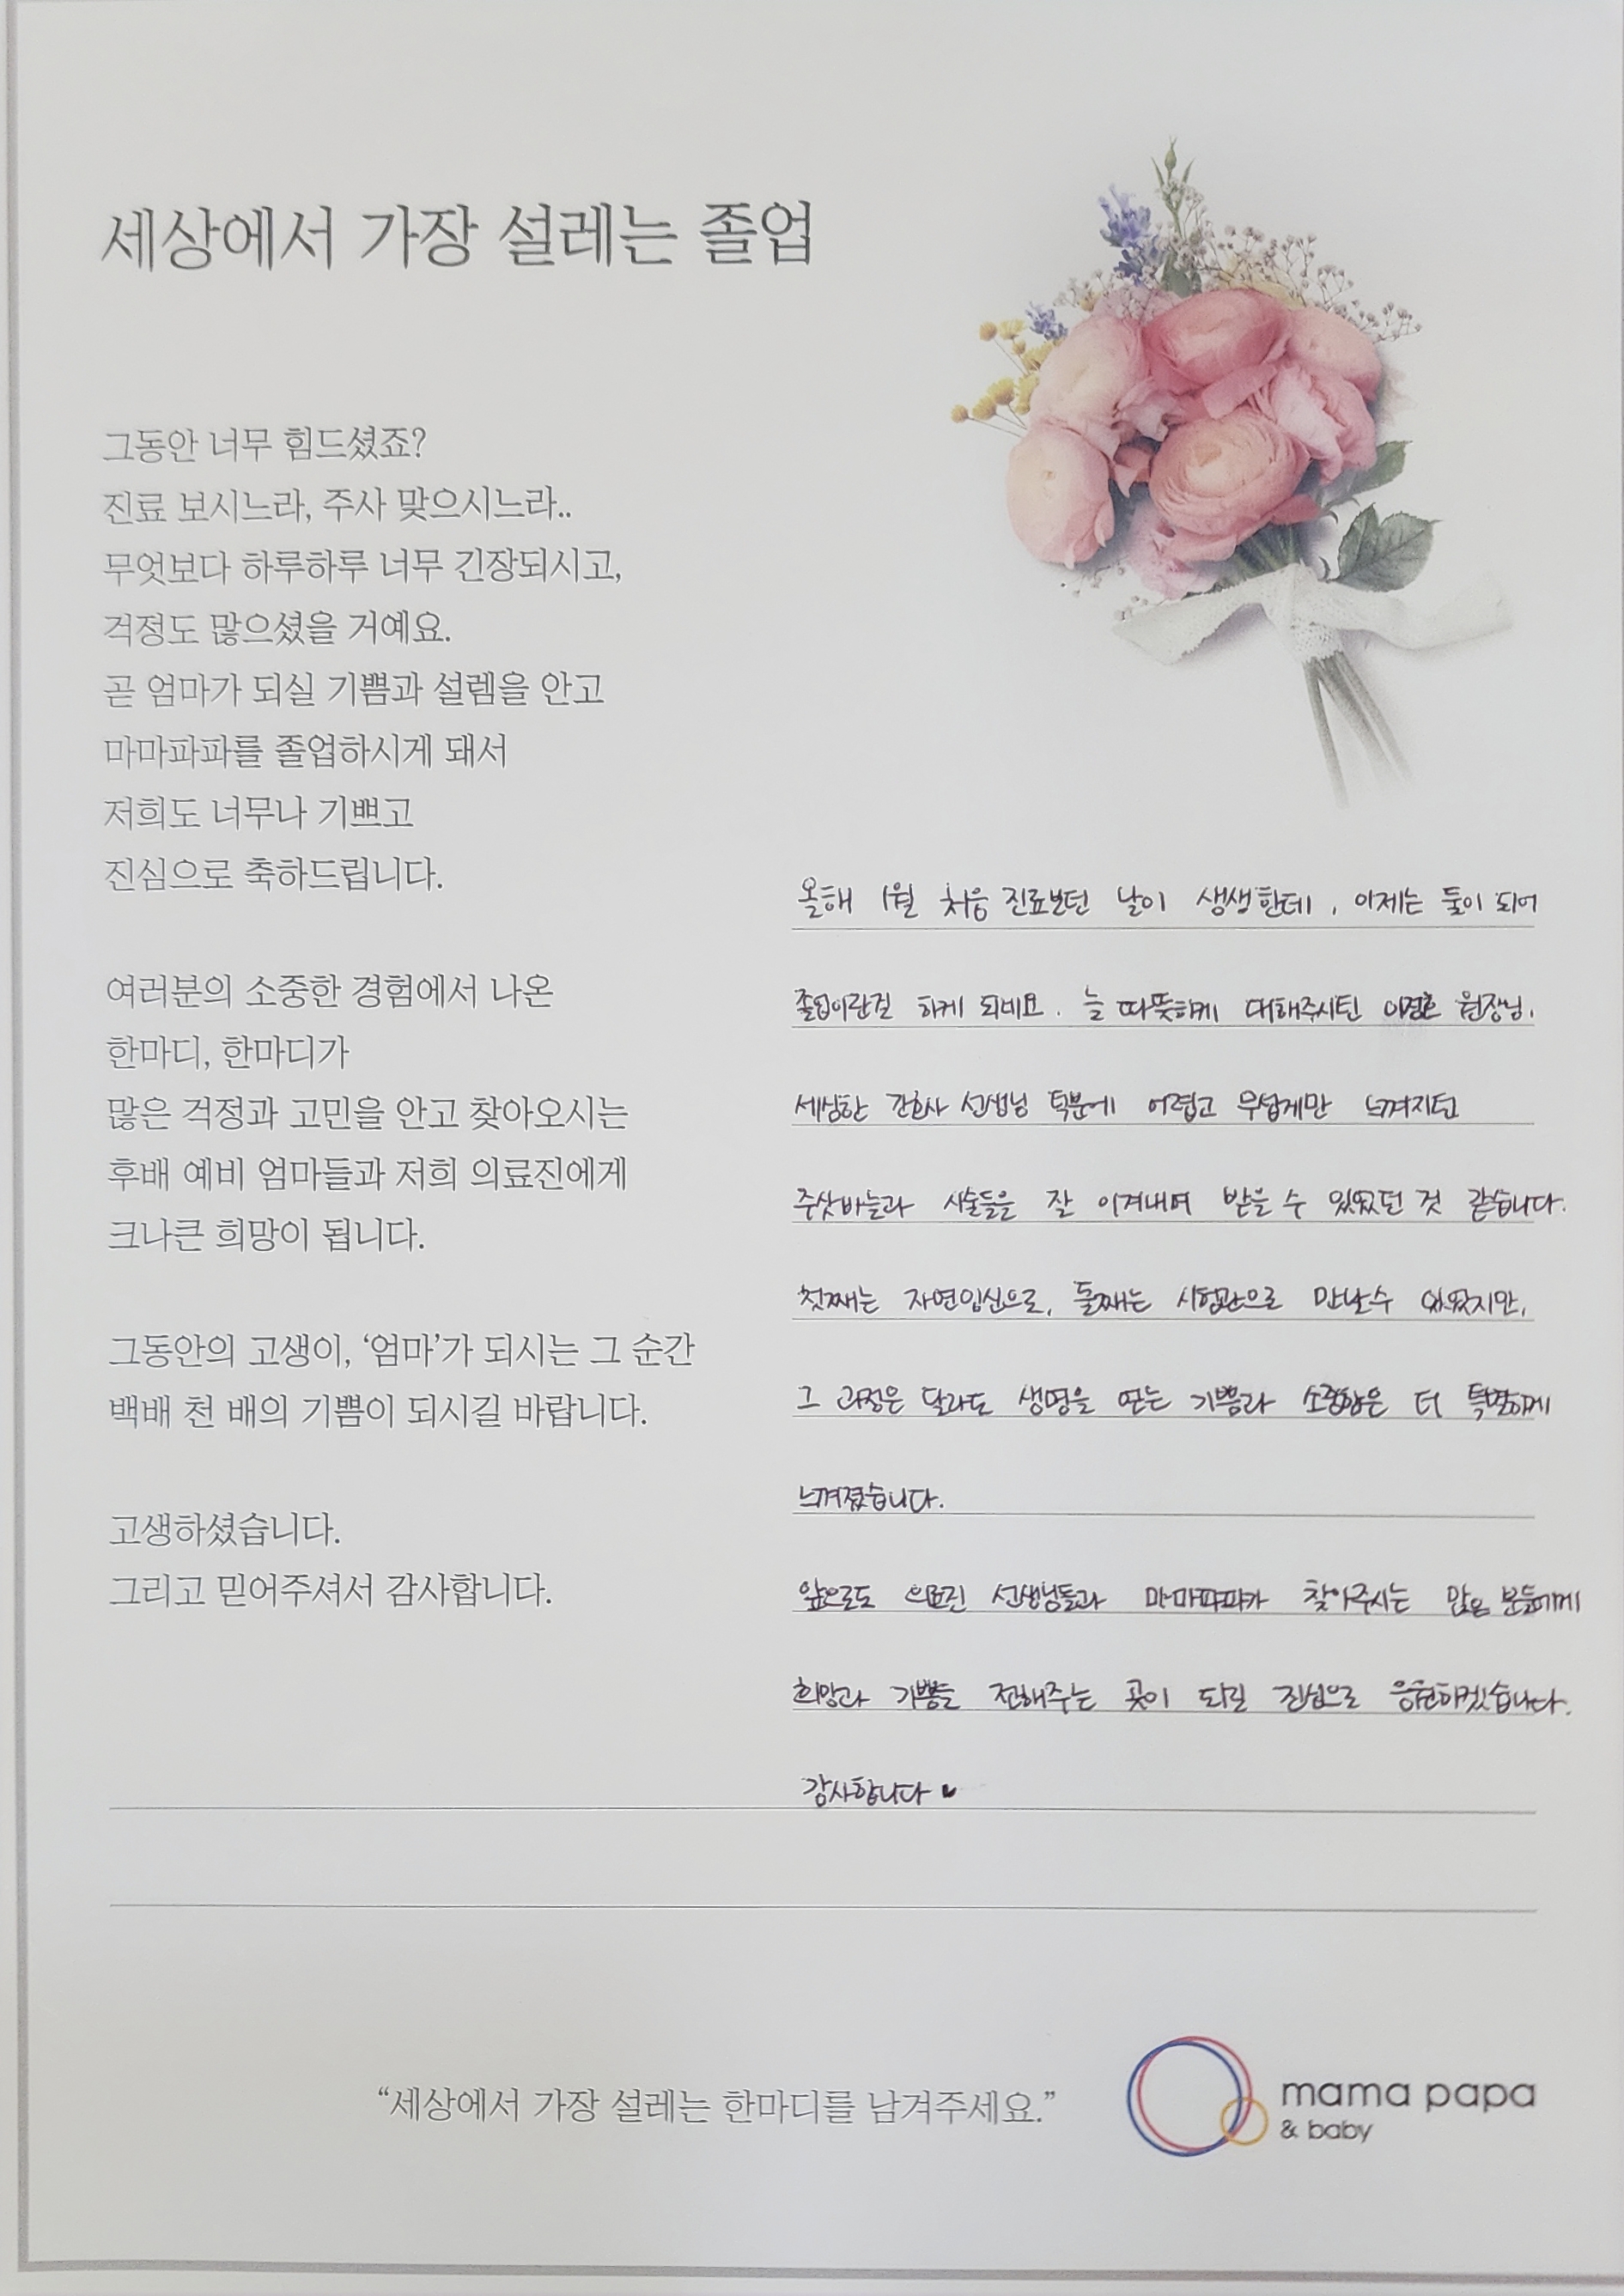 세상에서 가장 설레는 졸업
그동안 너무 힘드셨죠?
진료 보시느라, 주사 맞으시느라..
무엇보다 하루하루 너무 긴장되시고,
걱정도 많으셨을 거예요.
곧 엄마가 되실 기쁨과 설렘을 안고
마마파파를 졸업하시게 돼서
저희도 너무나 기쁘고
진심으로 축하드립니다.
여러분의 소중한 경험에서 나온
한마디, 한마디가
많은 걱정과 고민을 안고 찾아오시는
후배 예비 엄마들과 저희 의료진에게
크나큰 희망이 됩니다.
그동안의 고생이, ‘엄마’가 되시는 그 순간
백배 천 배의 기쁨이 되시길 바랍니다.
고생하셨습니다.
그리고 믿어주셔서 감사합니다.
올해 1월 처음 진료보던 날이 생생한데, 이제는 둘이 되어
졸업이란걸 하게 되네요. 늘 따뜻하게 대해주시던 원장님,
세심한 간호사 선생님 덕분에 어렵고 무섭게만 느껴지던
주삿바늘과 시술들을 잘 이겨내며 받을 수 있었던 것 같습니다.
첫째는 자연임신으로, 둘째는 시험관으로 만날수 있었지만,
그 과정은 달라도 생명을 얻는 기쁨과 소중함은 더 특별하게
느껴졌습니다.
앞으로도 의료진 선생님들과 마마파파가 찾아주시는 많은 분들에게
희망과 기쁨을 전해주는 곳이 되길 진심으로 응원하겠습니다.
감사합니다 ♥
“세상에서 가장 설레는 한마디를 남겨주세요.”
mama papa
& baby